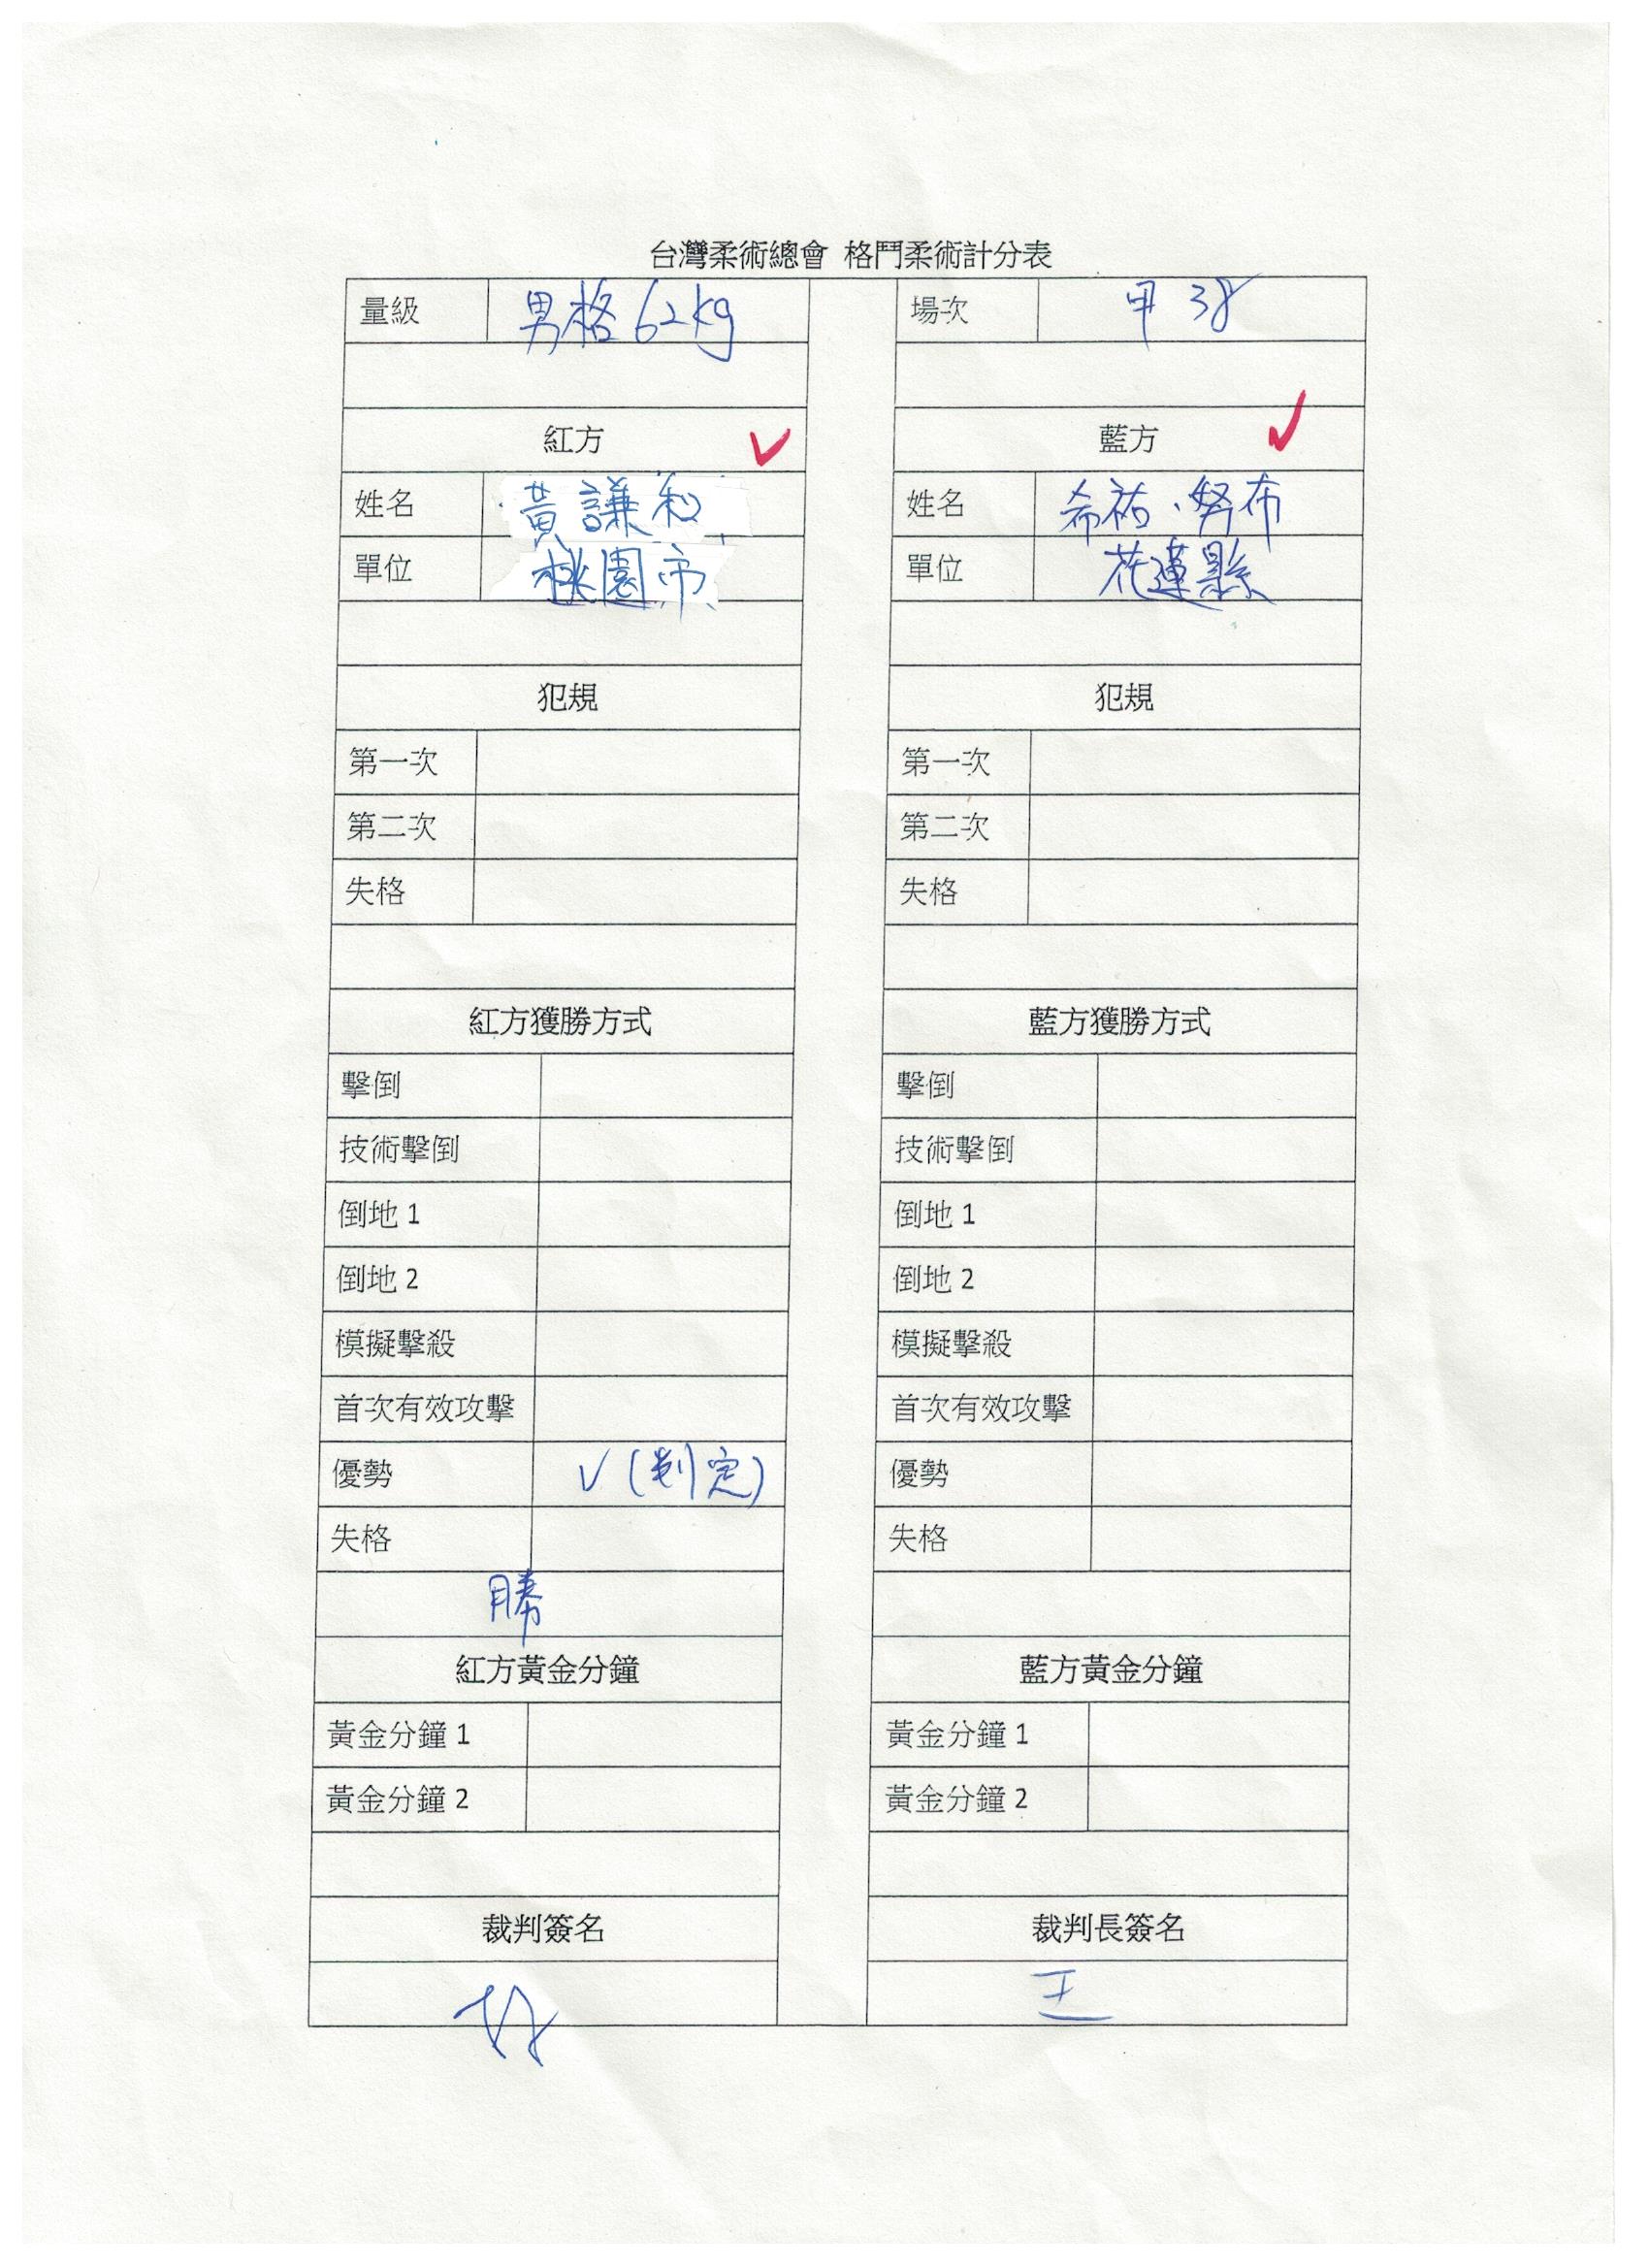 台灣柔術總會 格鬥柔術計分表
量級 男格 62kg 場次 甲 38
紅方 ✓ 藍方 ✓
姓名 黃謙和 姓名 希祐·努布
單位 桃園市 單位 花蓮縣
犯規 犯規
第一次 第一次
第二次 第二次
失格 失格
紅方獲勝方式 藍方獲勝方式
擊倒 擊倒
技術擊倒 技術擊倒
倒地 1 倒地 1
倒地 2 倒地 2
模擬擊殺 模擬擊殺
首次有效攻擊 首次有效攻擊
優勢 ✓(判定) 優勢
失格 失格
勝
紅方黃金分鐘 藍方黃金分鐘
黃金分鐘 1 黃金分鐘 1
黃金分鐘 2 黃金分鐘 2
裁判簽名 裁判長簽名
王